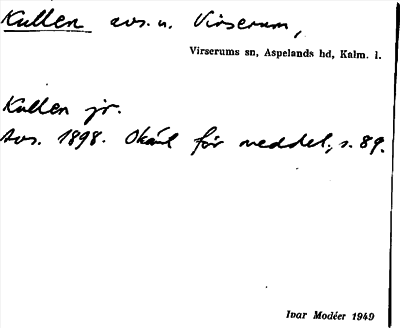 Kullen avs. u. Virserum,
Virserums sn, Aspelands hd, Kalm. l.
Kullen jr.
Avs. 1898. Okänt för meddel., s. 89.
Ivar Modéer 1949